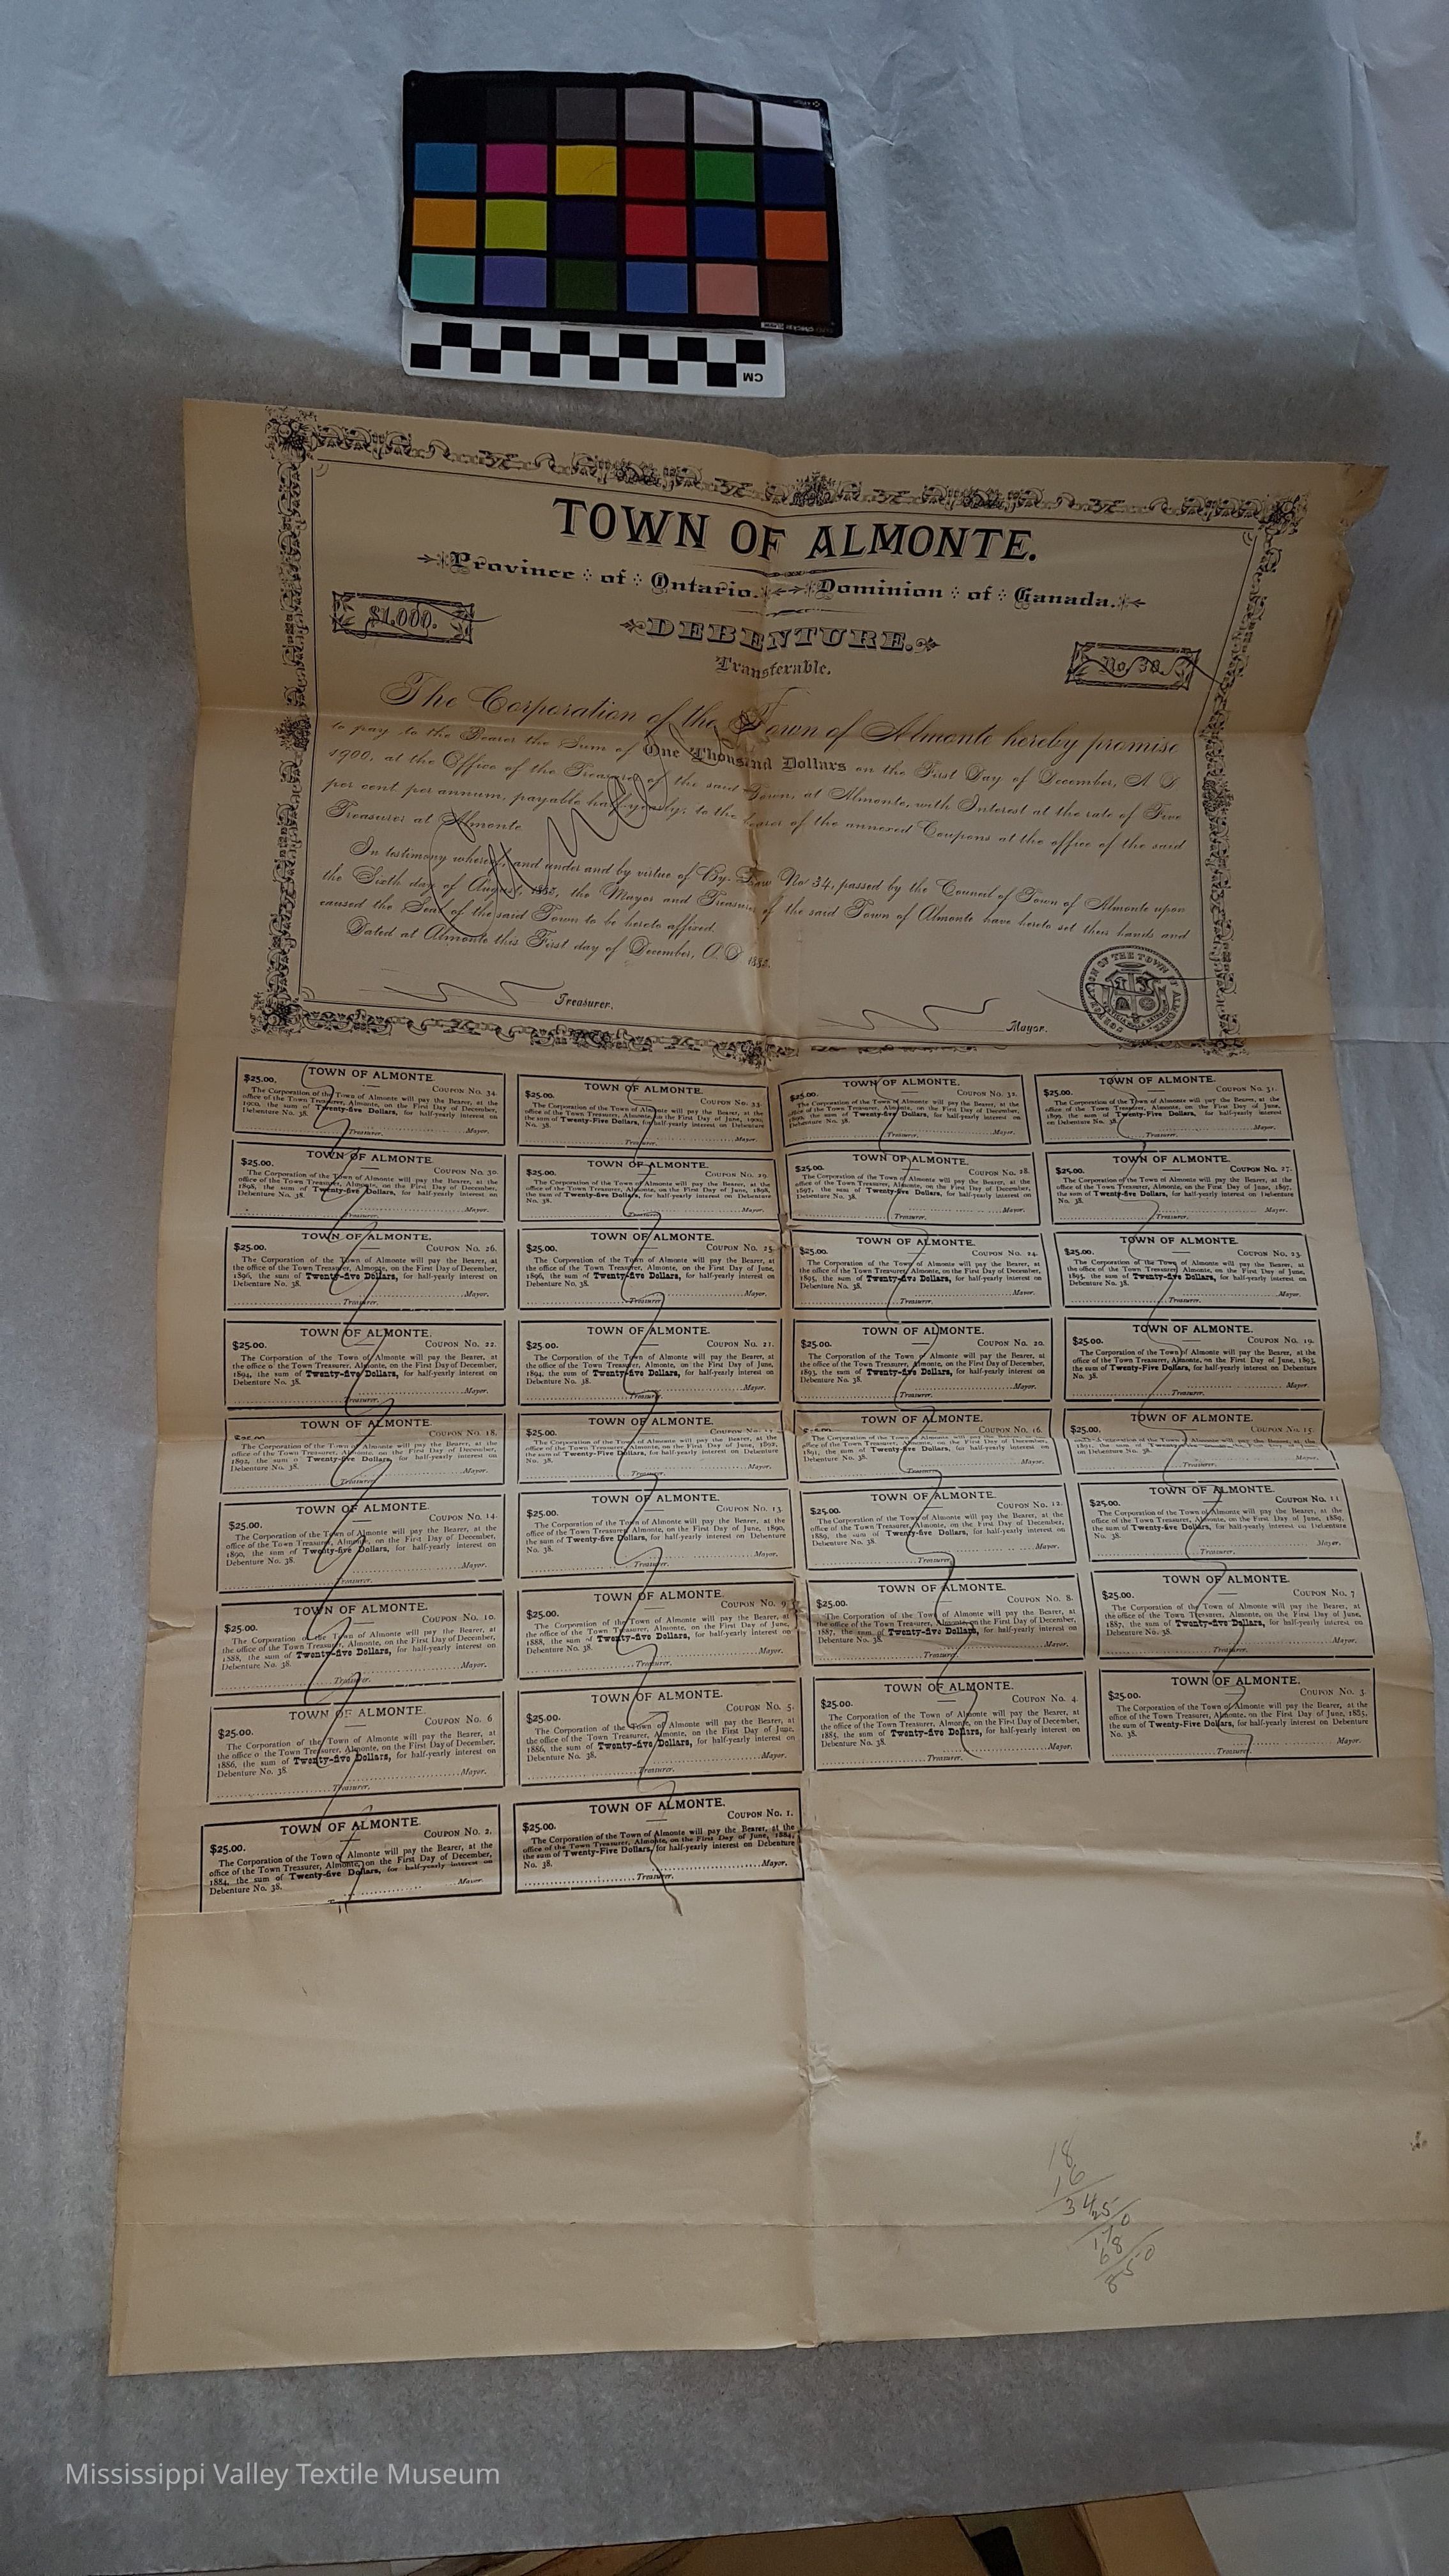 CM
TOWN OF ALMONTE.
Province of Ontario. Dominion of Canada.
DEBENTURE.
Transferable.
$1,000.
No 38.
The Corporation of the Town of Almonte hereby promise
to pay to the Bearer the Sum of One Thousand Dollars on the First Day of December, A. D.
1900, at the Office of the Treasurer of the said Town, at Almonte, with Interest at the rate of Five
per cent per annum, payable half-yearly, to the bearer of the annexed Coupons at the office of the said
Treasurer at Almonte
In testimony whereof, and under and by virtue of By-Law No 34, passed by the Council of Town of Almonte upon
the Sixth day of August, the Mayor and Treasurer of the said Town of Almonte have hereto set their hands and
caused the Seal of the said Town to be hereto affixed.
Dated at Almonte this First day of December, A. D.
Treasurer.
Mayor.
CORPORATION OF THE TOWN OF ALMONTE
TOWN OF ALMONTE.
$25.00. COUPON No. 34.
The Corporation of the Town of Almonte will pay the Bearer, at the
office of the Town Treasurer, Almonte, on the First Day of December,
1900, the sum of Twenty-five Dollars, for half-yearly interest on
Debenture No. 38.
Mayor.
Treasurer.
TOWN OF ALMONTE.
$25.00. COUPON No. 33.
The Corporation of the Town of Almonte will pay the Bearer, at the
office of the Town Treasurer, Almonte, on the First Day of June, 1900,
the sum of Twenty-Five Dollars, for half-yearly interest on Debenture
No. 38.
Mayor.
Treasurer.
TOWN OF ALMONTE.
$25.00. COUPON No. 32.
The Corporation of the Town of Almonte will pay the Bearer, at the
office of the Town Treasurer, Almonte, on the First Day of December,
1899, the sum of Twenty-five Dollars, for half-yearly interest on
Debenture No. 38.
Mayor.
Treasurer.
TOWN OF ALMONTE.
$25.00. COUPON No. 31.
The Corporation of the Town of Almonte will pay the Bearer, at the
office of the Town Treasurer, Almonte, on the First Day of June,
1899, the sum of Twenty-Five Dollars, for half-yearly interest
on Debenture No. 38.
Mayor.
Treasurer.
TOWN OF ALMONTE
$25.00. COUPON No. 30.
The Corporation of the Town of Almonte will pay the Bearer, at the
office of the Town Treasurer, Almonte, on the First Day of December,
1898, the sum of Twenty-five Dollars, for half-yearly interest on
Debenture No. 38.
Mayor.
Treasurer.
TOWN OF ALMONTE.
$25.00. COUPON No. 29.
The Corporation of the Town of Almonte will pay the Bearer, at the
office of the Town Treasurer, Almonte, on the First Day of June, 1898,
the sum of Twenty-five Dollars, for half-yearly interest on Debenture
No. 38.
Mayor.
Treasurer.
TOWN OF ALMONTE.
$25.00. COUPON No. 28.
The Corporation of the Town of Almonte will pay the Bearer, at the
office of the Town Treasurer, Almonte, on the First Day of December,
1897, the sum of Twenty-five Dollars, for half-yearly interest on
Debenture No. 38.
Mayor.
Treasurer.
TOWN OF ALMONTE.
$25.00. COUPON No. 27.
The Corporation of the Town of Almonte will pay the Bearer, at the
office of the Town Treasurer, Almonte, on the First Day of June, 1897,
the sum of Twenty-five Dollars, for half-yearly interest on Debenture
No. 38.
Mayor.
Treasurer.
TOWN OF ALMONTE.
$25.00. COUPON No. 26.
The Corporation of the Town of Almonte will pay the Bearer, at
the office of the Town Treasurer, Almonte, on the First Day of December,
1896, the sum of Twenty-five Dollars, for half-yearly interest on
Debenture No. 38.
Mayor.
Treasurer.
TOWN OF ALMONTE.
$25.00. COUPON No. 25.
The Corporation of the Town of Almonte will pay the Bearer, at
the office of the Town Treasurer, Almonte, on the First Day of June,
1896, the sum of Twenty-five Dollars, for half-yearly interest on
Debenture No. 38.
Mayor.
Treasurer.
TOWN OF ALMONTE.
$25.00. COUPON No. 24.
The Corporation of the Town of Almonte will pay the Bearer, at
the office of the Town Treasurer, Almonte, on the First Day of December,
1895, the sum of Twenty-five Dollars, for half-yearly interest on
Debenture No. 38.
Mayor.
Treasurer.
TOWN OF ALMONTE.
$25.00. COUPON No. 23.
The Corporation of the Town of Almonte will pay the Bearer, at
the office of the Town Treasurer, Almonte, on the First Day of June,
1895, the sum of Twenty-five Dollars, for half-yearly interest on
Debenture No. 38.
Mayor.
Treasurer.
TOWN OF ALMONTE.
$25.00. COUPON No. 22.
The Corporation of the Town of Almonte will pay the Bearer, at
the office of the Town Treasurer, Almonte, on the First Day of December,
1894, the sum of Twenty-five Dollars, for half-yearly interest on
Debenture No. 38.
Mayor.
Treasurer.
TOWN OF ALMONTE.
$25.00. COUPON No. 21.
The Corporation of the Town of Almonte will pay the Bearer, at
the office of the Town Treasurer, Almonte, on the First Day of June,
1894, the sum of Twenty-five Dollars, for half-yearly interest on
Debenture No. 38.
Mayor.
Treasurer.
TOWN OF ALMONTE.
$25.00. COUPON No. 20.
The Corporation of the Town of Almonte will pay the Bearer, at
the office of the Town Treasurer, Almonte, on the First Day of December,
1893, the sum of Twenty-five Dollars, for half-yearly interest on
Debenture No. 38.
Mayor.
Treasurer.
TOWN OF ALMONTE.
$25.00. COUPON No. 19.
The Corporation of the Town of Almonte will pay the Bearer, at the
office of the Town Treasurer, Almonte, on the First Day of June, 1893,
the sum of Twenty-Five Dollars, for half-yearly interest on Debenture
No. 38.
Mayor.
Treasurer.
TOWN OF ALMONTE.
COUPON No. 18.
The Corporation of the Town of Almonte will pay the Bearer, at the
office of the Town Treasurer, Almonte, on the First Day of December,
1892, the sum of Twenty-five Dollars, for half-yearly interest on
Debenture No. 38.
Mayor.
Treasurer.
TOWN OF ALMONTE.
$25.00.
The Corporation of the Town of Almonte will pay the Bearer, at the
office of the Town Treasurer, Almonte, on the First Day of June, 1892,
the sum of Twenty-Five Dollars, for half-yearly interest on Debenture
No. 38.
Mayor.
Treasurer.
TOWN OF ALMONTE.
COUPON No. 16.
office of the Town Treasurer, Almonte, on the First Day of December,
1891, the sum of Twenty-five Dollars, for half-yearly interest on
Debenture No. 38.
Mayor.
Treasurer.
TOWN OF ALMONTE.
$25.00. COUPON No. 15
Mayor.
Treasurer.
TOWN OF ALMONTE.
$25.00. COUPON No. 14.
The Corporation of the Town of Almonte will pay the Bearer, at the
office of the Town Treasurer, Almonte, on the First Day of December,
1890, the sum of Twenty-five Dollars, for half-yearly interest on
Debenture No. 38.
Mayor.
Treasurer.
TOWN OF ALMONTE.
$25.00. COUPON No. 13.
The Corporation of the Town of Almonte will pay the Bearer, at the
office of the Town Treasurer, Almonte, on the First Day of June, 1890,
the sum of Twenty-five Dollars, for half-yearly interest on Debenture
No. 38.
Mayor.
Treasurer.
TOWN OF ALMONTE.
$25.00. COUPON No. 12.
The Corporation of the Town of Almonte will pay the Bearer, at the
office of the Town Treasurer, Almonte, on the First Day of December,
1889, the sum of Twenty-five Dollars, for half-yearly interest on
Debenture No. 38.
Mayor.
Treasurer.
TOWN OF ALMONTE.
$25.00. COUPON No. 11
The Corporation of the Town of Almonte will pay the Bearer, at the
office of the Town Treasurer, Almonte, on the First Day of June, 1889,
the sum of Twenty-five Dollars, for half-yearly interest on Debenture
No. 38.
Mayor.
Treasurer.
TOWN OF ALMONTE.
$25.00. COUPON No. 10.
The Corporation of the Town of Almonte will pay the Bearer, at
the office of the Town Treasurer, Almonte, on the First Day of December,
1888, the sum of Twenty-five Dollars, for half-yearly interest on
Debenture No. 38.
Mayor.
Treasurer.
TOWN OF ALMONTE.
$25.00. COUPON No. 9.
The Corporation of the Town of Almonte will pay the Bearer, at
the office of the Town Treasurer, Almonte, on the First Day of June,
1888, the sum of Twenty-five Dollars, for half-yearly interest on
Debenture No. 38.
Mayor.
Treasurer.
TOWN OF ALMONTE.
$25.00. COUPON No. 8.
The Corporation of the Town of Almonte will pay the Bearer, at
the office of the Town Treasurer, Almonte, on the First Day of December,
1887, the sum of Twenty-five Dollars, for half-yearly interest on
Debenture No. 38.
Mayor.
Treasurer.
TOWN OF ALMONTE.
$25.00. COUPON No. 7
The Corporation of the Town of Almonte will pay the Bearer, at
the office of the Town Treasurer, Almonte, on the First Day of June,
1887, the sum of Twenty-five Dollars, for half-yearly interest on
Debenture No. 38.
Mayor.
Treasurer.
TOWN OF ALMONTE.
$25.00. COUPON No. 6
The Corporation of the Town of Almonte will pay the Bearer, at
the office o the Town Treasurer, Almonte, on the First Day of December,
1886, the sum of Twenty-five Dollars, for half-yearly interest on
Debenture No. 38.
Mayor.
Treasurer.
TOWN OF ALMONTE.
$25.00. COUPON No. 5.
The Corporation of the Town of Almonte will pay the Bearer, at
the office of the Town Treasurer, Almonte, on the First Day of June,
1886, the sum of Twenty-five Dollars, for half-yearly interest on
Debenture No. 38.
Mayor.
Treasurer.
TOWN OF ALMONTE.
$25.00. COUPON No. 4.
The Corporation of the Town of Almonte will pay the Bearer, at
the office of the Town Treasurer, Almonte, on the First Day of December,
1885, the sum of Twenty-five Dollars, for half-yearly interest on
Debenture No. 38.
Mayor.
Treasurer.
TOWN OF ALMONTE.
$25.00. COUPON No. 3.
The Corporation of the Town of Almonte will pay the Bearer, at the
office of the Town Treasurer, Almonte, on the First Day of June, 1885,
the sum of Twenty-Five Dollars, for half-yearly interest on Debenture
No. 38.
Mayor.
Treasurer.
TOWN OF ALMONTE.
$25.00. COUPON No. 2.
The Corporation of the Town of Almonte will pay the Bearer, at the
office of the Town Treasurer, Almonte, on the First Day of December,
1884, the sum of Twenty-five Dollars, for half-yearly interest on
Debenture No. 38.
Mayor.
TOWN OF ALMONTE.
$25.00. COUPON No. 1.
The Corporation of the Town of Almonte will pay the Bearer, at the
office of the Town Treasurer, Almonte, on the First Day of June, 1884,
the sum of Twenty-Five Dollars, for half-yearly interest on Debenture
No. 38.
Mayor.
Treasurer.
18
16
34
25
170
68
850
Mississippi Valley Textile Museum